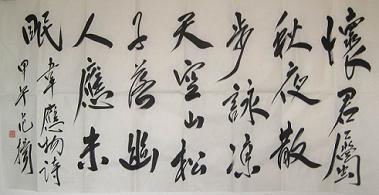 懷君屬
秋夜散
步詠涼
天空山松
子落幽
人應未
眠 韋應物詩
甲午